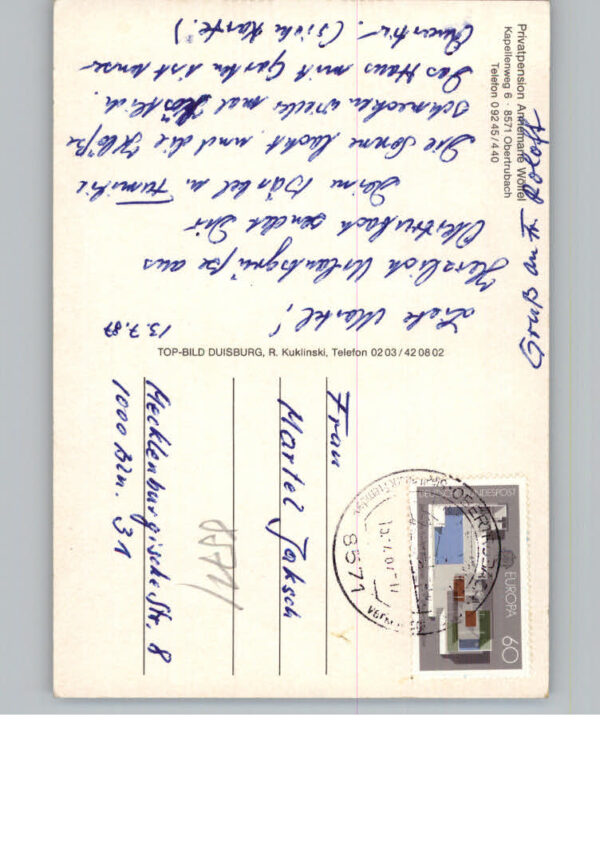 Privatpension Annemarie Wölfel
Kapellenweg 6 · 8571 Obertrubach
Telefon 0 92 45/4 40
13.7.87
Liebe Martel!
Herzlich Urlaubsgrüße aus
Obertrubach sendet Dir
Deine Bärbel u. Familie
Die Sonne lacht und die Klöße
schmecken wieder mal köstlich.
Das Haus mit Garten ist unser
Quartier. (Siehe Karte.)
Gruß von
TOP-BILD DUISBURG, R. Kuklinski, Telefon 02 03 / 42 08 02
Frau
Martel Jaksch
Mecklenburgische Str. 8
1000 Bln. 31
DEUTSCHE BUNDESPOST
EUROPA
60
OBERTRUBACH
8571